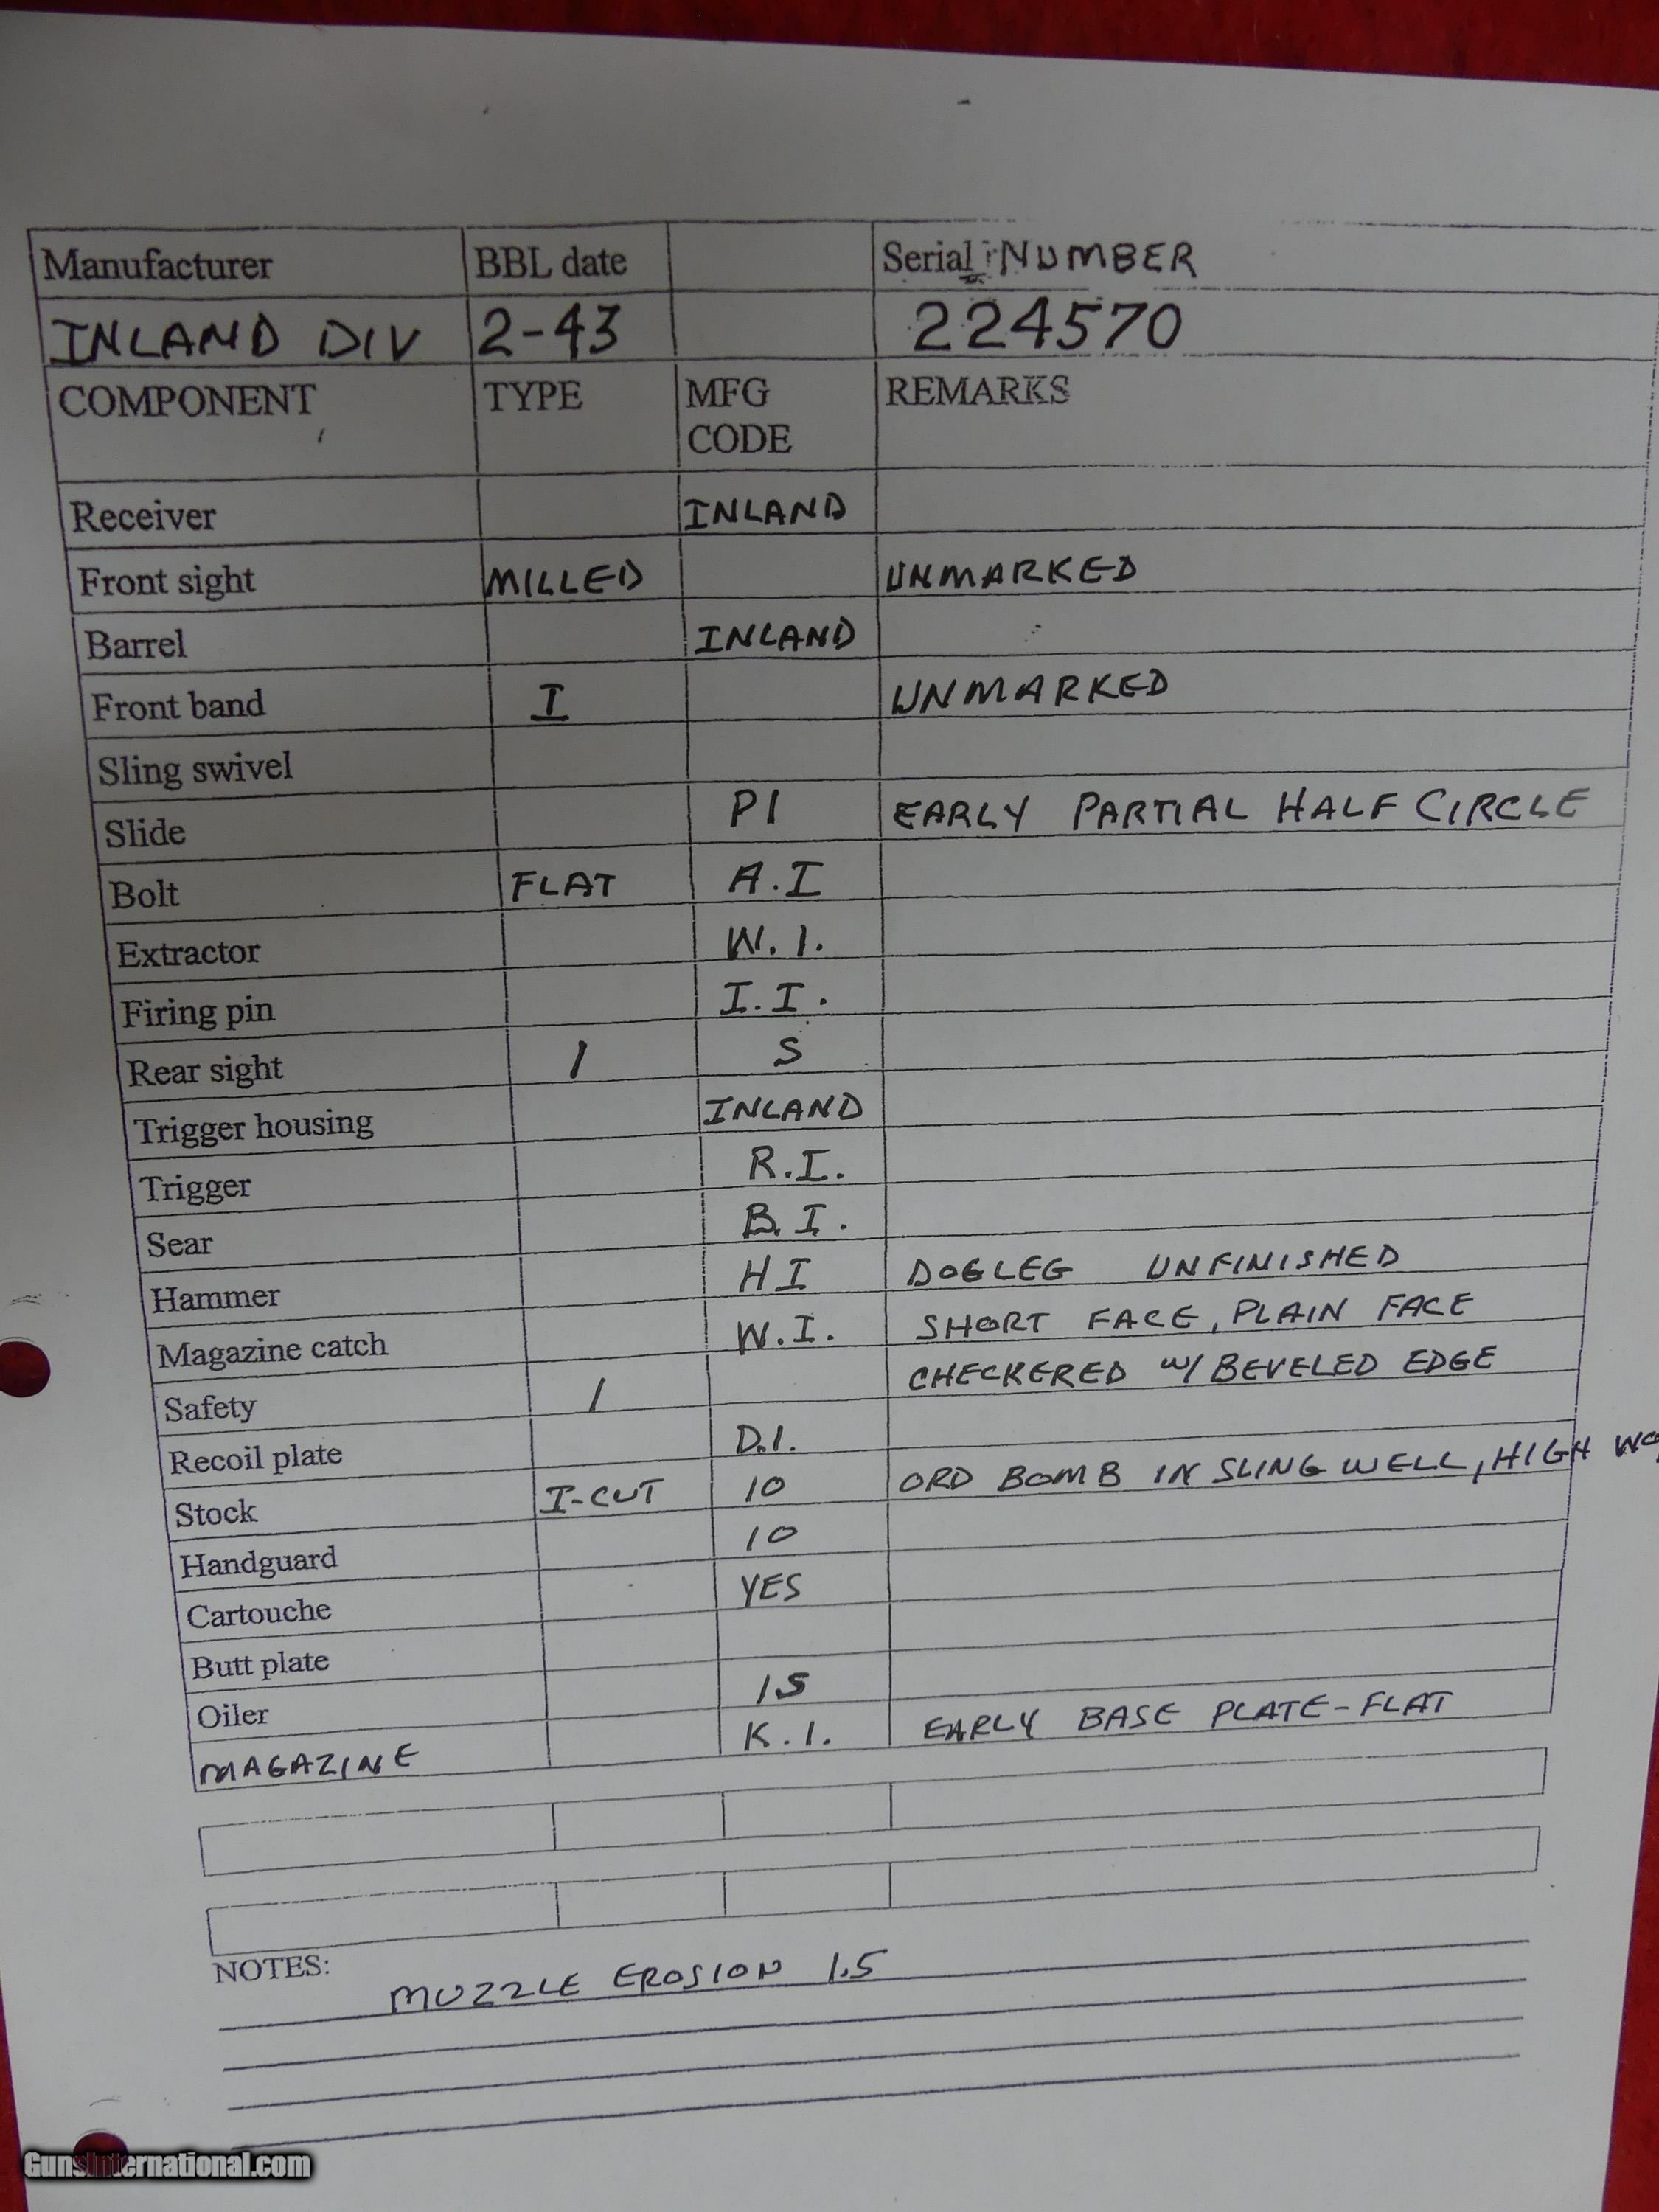 Manufacturer BBL date Serial NUMBER
INLAND DIV 2-43 224570
COMPONENT TYPE MFG CODE REMARKS
Receiver INLAND
Front sight MILLED UNMARKED
Barrel INLAND
Front band I UNMARKED
Sling swivel
Slide PI EARLY PARTIAL HALF CIRCLE
Bolt FLAT A.I
Extractor W.I.
Firing pin I.I.
Rear sight 1 S
Trigger housing INLAND
Trigger R.I.
Sear B.I.
Hammer HI DOGLEG UNFINISHED
Magazine catch W.I. SHORT FACE, PLAIN FACE
Safety 1 CHECKERED W/ BEVELED EDGE
Recoil plate D.I.
Stock I-CUT IO ORD BOMB IN SLING WELL, HIGH
Handguard IO
Cartouche YES
Butt plate
Oiler IS
MAGAZINE K.I. EARLY BASE PLATE-FLAT
NOTES:
MUZZLE EROSION 1.5
GunsInternational.com